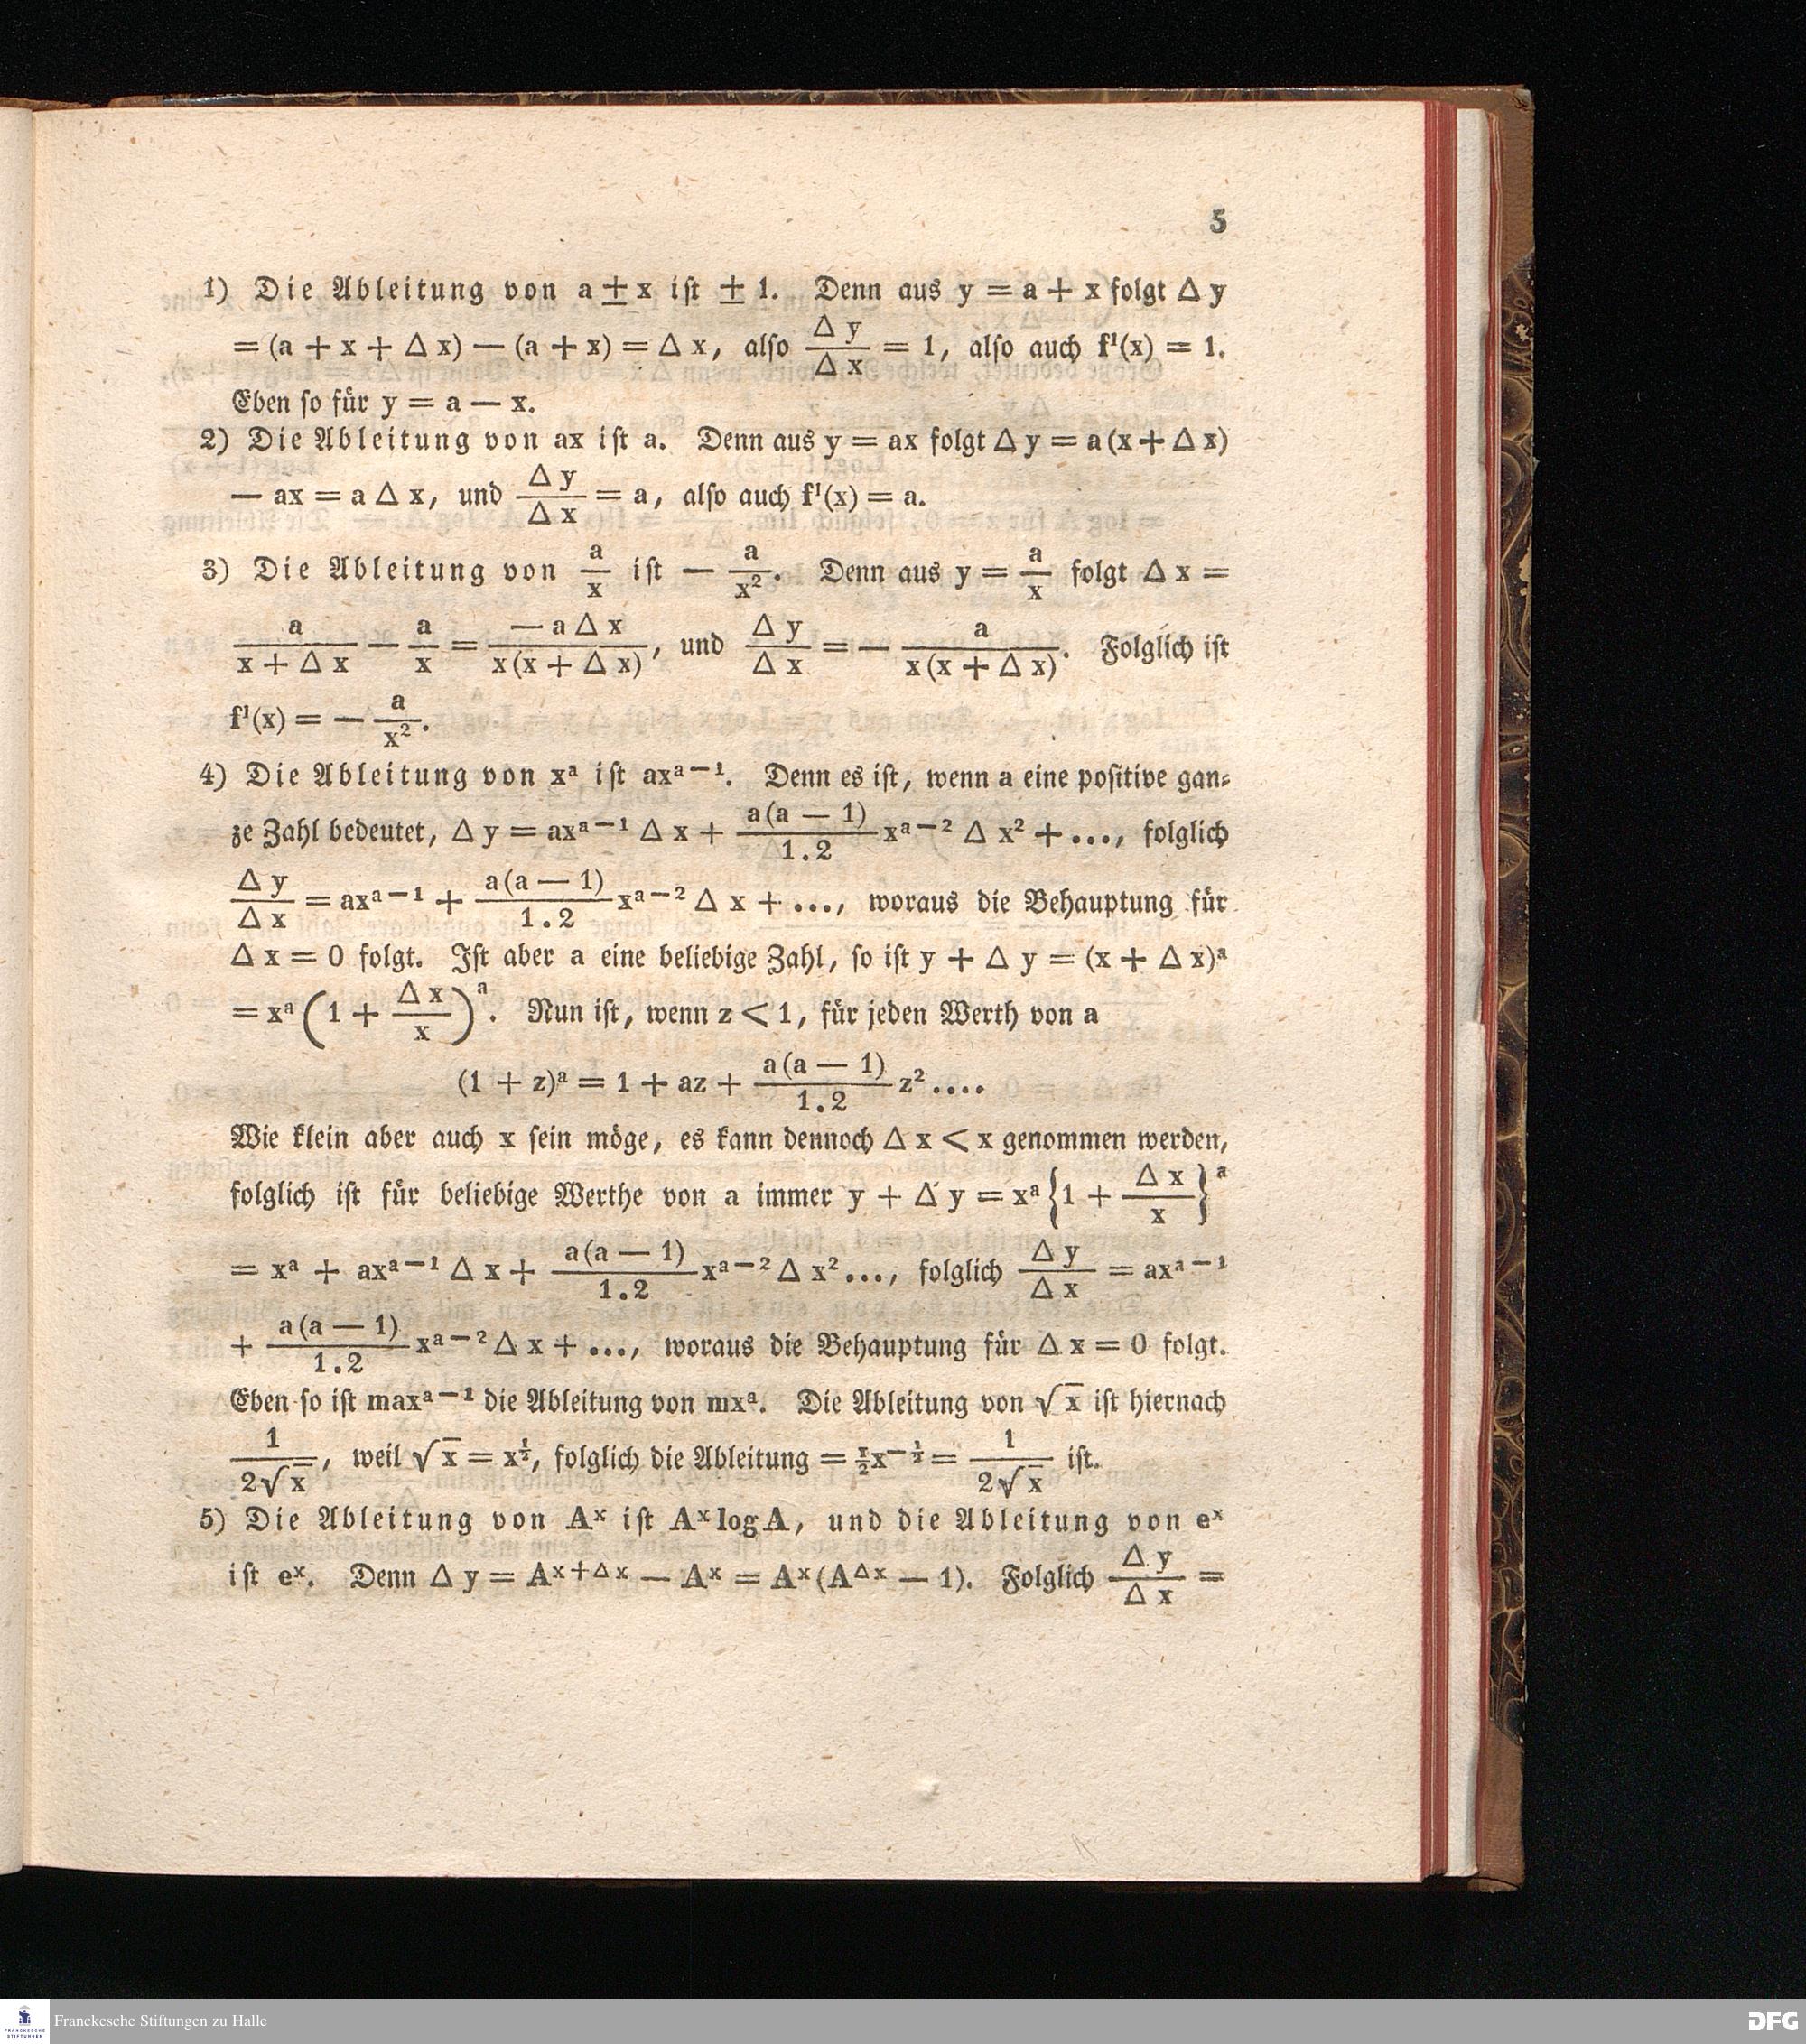 5
1) Die Ableitung von a ± x ist ± 1. Denn aus y = a + x folgt Δ y
= (a + x + Δ x) — (a + x) = Δ x, also \frac{Δ y}{Δ x} = 1, also auch f¹(x) = 1.
Eben so für y = a — x.
2) Die Ableitung von ax ist a. Denn aus y = ax folgt Δ y = a (x + Δ x)
— ax = a Δ x, und \frac{Δ y}{Δ x} = a, also auch f¹(x) = a.
3) Die Ableitung von \frac{a}{x} ist — \frac{a}{x²}. Denn aus y = \frac{a}{x} folgt Δ x =
\frac{a}{x + Δ x} — \frac{a}{x} = \frac{— a Δ x}{x (x + Δ x)}, und \frac{Δ y}{Δ x} = — \frac{a}{x (x + Δ x)}. Folglich ist
f¹(x) = — \frac{a}{x²}.
4) Die Ableitung von x^a ist ax^{a—1}. Denn es ist, wenn a eine positive gan⸗
ze Zahl bedeutet, Δ y = ax^{a—1} Δ x + \frac{a (a — 1)}{1.2} x^{a—2} Δ x² + ..., folglich
\frac{Δ y}{Δ x} = ax^{a—1} + \frac{a (a — 1)}{1.2} x^{a—2} Δ x + ..., woraus die Behauptung für
Δ x = 0 folgt. Ist aber a eine beliebige Zahl, so ist y + Δ y = (x + Δ x)^a
= x^a (1 + \frac{Δ x}{x})^a. Nun ist, wenn z < 1, für jeden Werth von a
(1 + z)^a = 1 + az + \frac{a (a — 1)}{1.2} z² ....
Wie klein aber auch x sein möge, es kann dennoch Δ x < x genommen werden,
folglich ist für beliebige Werthe von a immer y + Δ y = x^a {1 + \frac{Δ x}{x}}^a
= x^a + ax^{a—1} Δ x + \frac{a (a — 1)}{1.2} x^{a—2} Δ x² ..., folglich \frac{Δ y}{Δ x} = ax^{a—1}
+ \frac{a (a — 1)}{1.2} x^{a—2} Δ x + ..., woraus die Behauptung für Δ x = 0 folgt.
Eben so ist max^{a—1} die Ableitung von mx^a. Die Ableitung von √x ist hiernach
\frac{1}{2√x}, weil √x = x^{½}, folglich die Ableitung = ½x^{—½} = \frac{1}{2√x} ist.
5) Die Ableitung von A^x ist A^x log A, und die Ableitung von e^x
ist e^x. Denn Δ y = A^{x+Δx} — A^x = A^x (A^{Δx} — 1). Folglich \frac{Δ y}{Δ x} =
FRANCKESCHE
STIFTUNGEN
Franckesche Stiftungen zu Halle
DFG